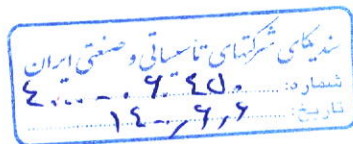 سندیکای شرکتهای تأسیساتی و صنعتی ایران
شماره:
تاریخ: ۱۴۰۰/۶/۶